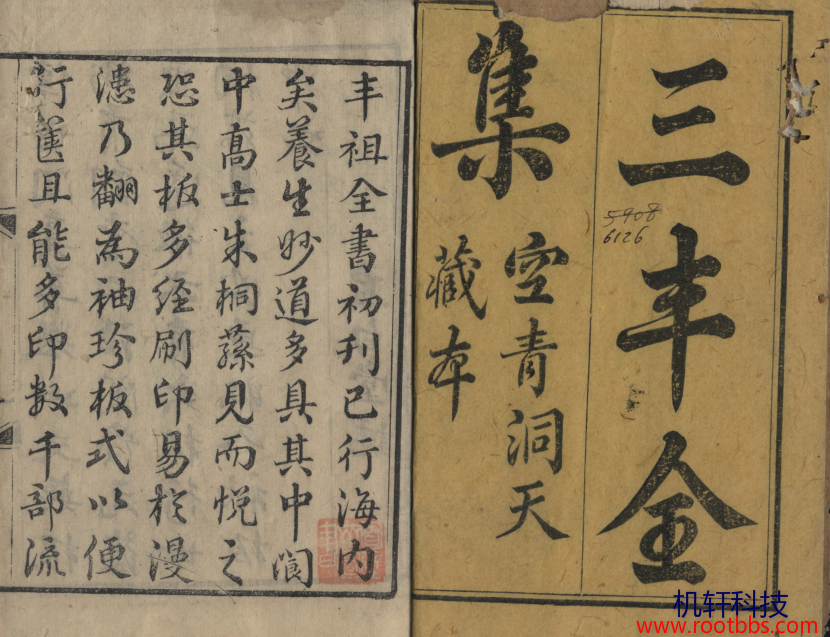 三丰全
集
空青洞天
藏本
5908
6126
丰祖全書初刊已行海内
矣養生妙道多具其中閬
中高士朱桐蓀見而悦之
恐其板多经刷印易於漫
漶乃翻為袖珍板式以便
行匧且能多印数千部流
机轩科技
www.rootbbs.com